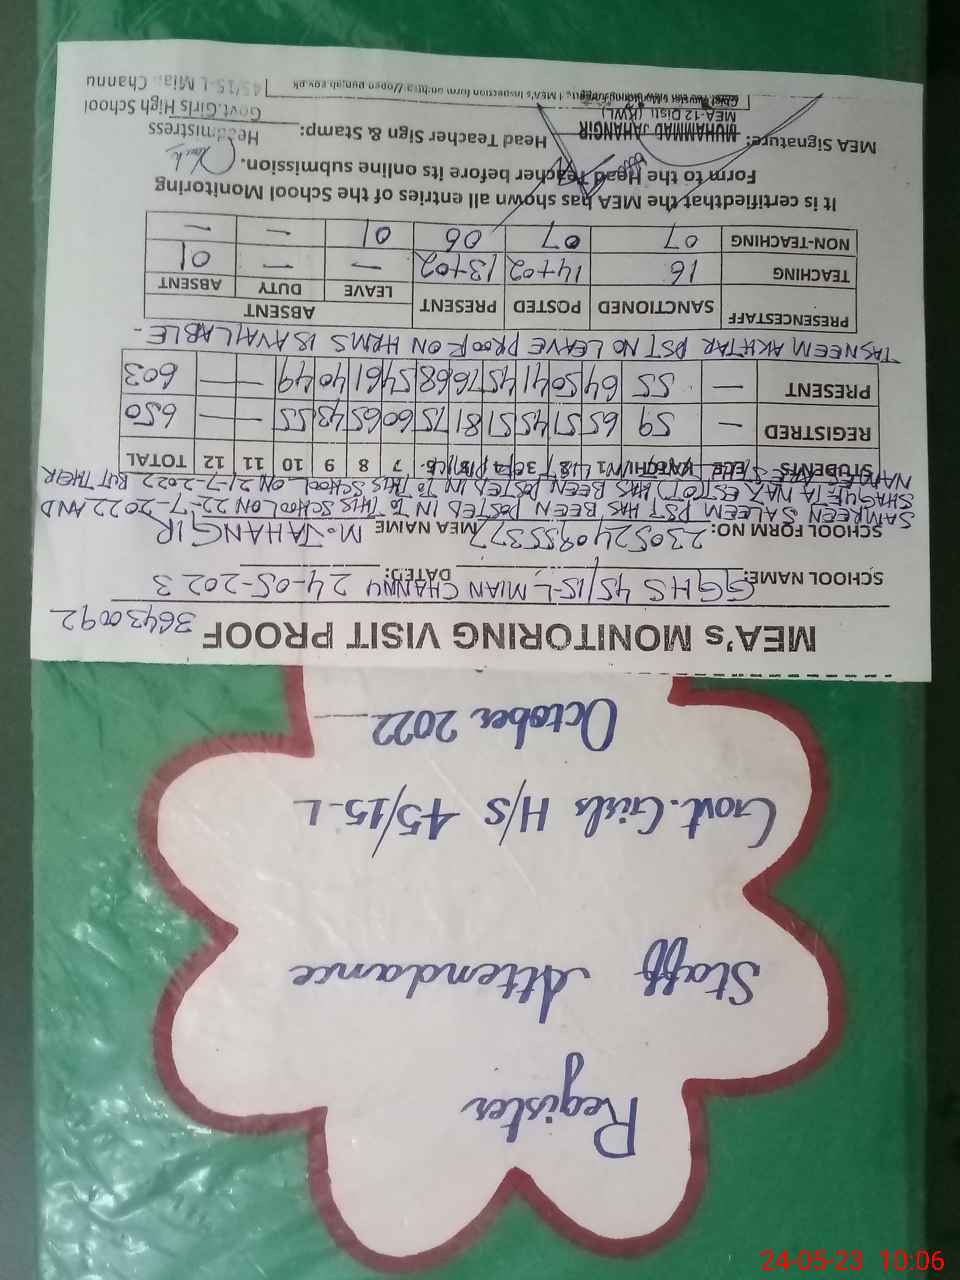 Register
Staff Attendance
Govt. Girls H/S 45/15-L
October 2022
MEA's MONITORING VISIT PROOF 36430092
SCHOOL NAME: GGHS 45/15-L MIAN CHANNU DATED: 24-05-2023
SCHOOL FORM NO: 23052409 55377 MEA NAME M. JAHANGIR
SAMREEN SALEEM PST HAS BEEN POSTED IN TO THIS SCHOOL ON 22-7-2022 AND
SHAGUFTA NAZ EST(OT) HAS BEEN POSTED IN TO THIS SCHOOL ON 21-7-2022 BUT THEIR
NAMES ARE
STUDENTS ECE KATCHI/N 1 2 3 4 5 6 7 8 9 10 11 12 TOTAL
REGISTRED — 59 65 51 45 51 81 75 60 65 43 55 — — 650
PRESENT — 55 64 50 41 45 76 68 54 61 40 49 — — 603
TASNEEM AKHTAR PST NO LEAVE PROOF ON HRMS IS AVAILABLE -
PRESENCESTAFF SANCTIONED POSTED PRESENT ABSENT
LEAVE DUTY ABSENT
TEACHING 16 14+02 13+02 — — 01
NON-TEACHING 07 07 06 01 — —
It is certifiedthat the MEA has shown all entries of the School Monitoring
Form to the Head Teacher before its online submission.
MEA Signature: MUHAMMAD JAHANGIR Head Teacher Sign & Stamp: Headmistress
MEA-12 Distt (KWL) Govt.Girls High School
45/15-L Mian Channu
24-05-23 10:06